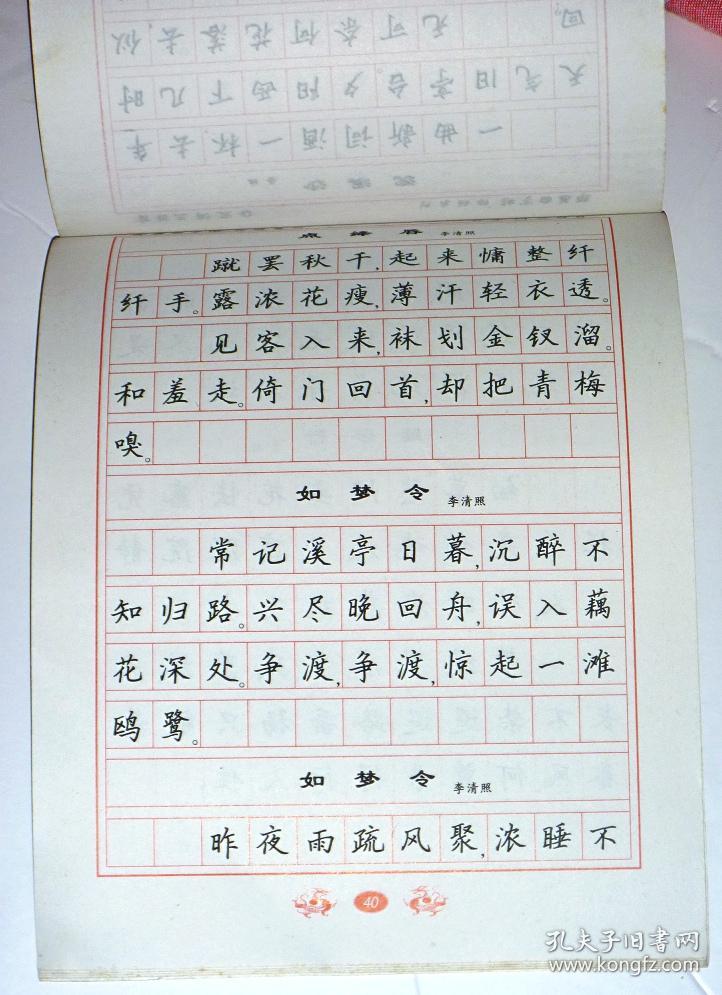 浣溪沙 晏殊
一曲新词酒一杯,去年
天气旧亭台。夕阳西下几时
回。无可奈何花落去,似
点绛唇 李清照
蹴罢秋千,起来慵整纤
纤手。露浓花瘦,薄汗轻衣透。
见客入来,袜划金钗溜。
和羞走。倚门回首,却把青梅
嗅。
如梦令 李清照
常记溪亭日暮,沉醉不
知归路。兴尽晚回舟,误入藕
花深处。争渡,争渡,惊起一滩
鸥鹭。
如梦令 李清照
昨夜雨疏风聚,浓睡不
40
孔夫子旧书网
www.kongfz.com